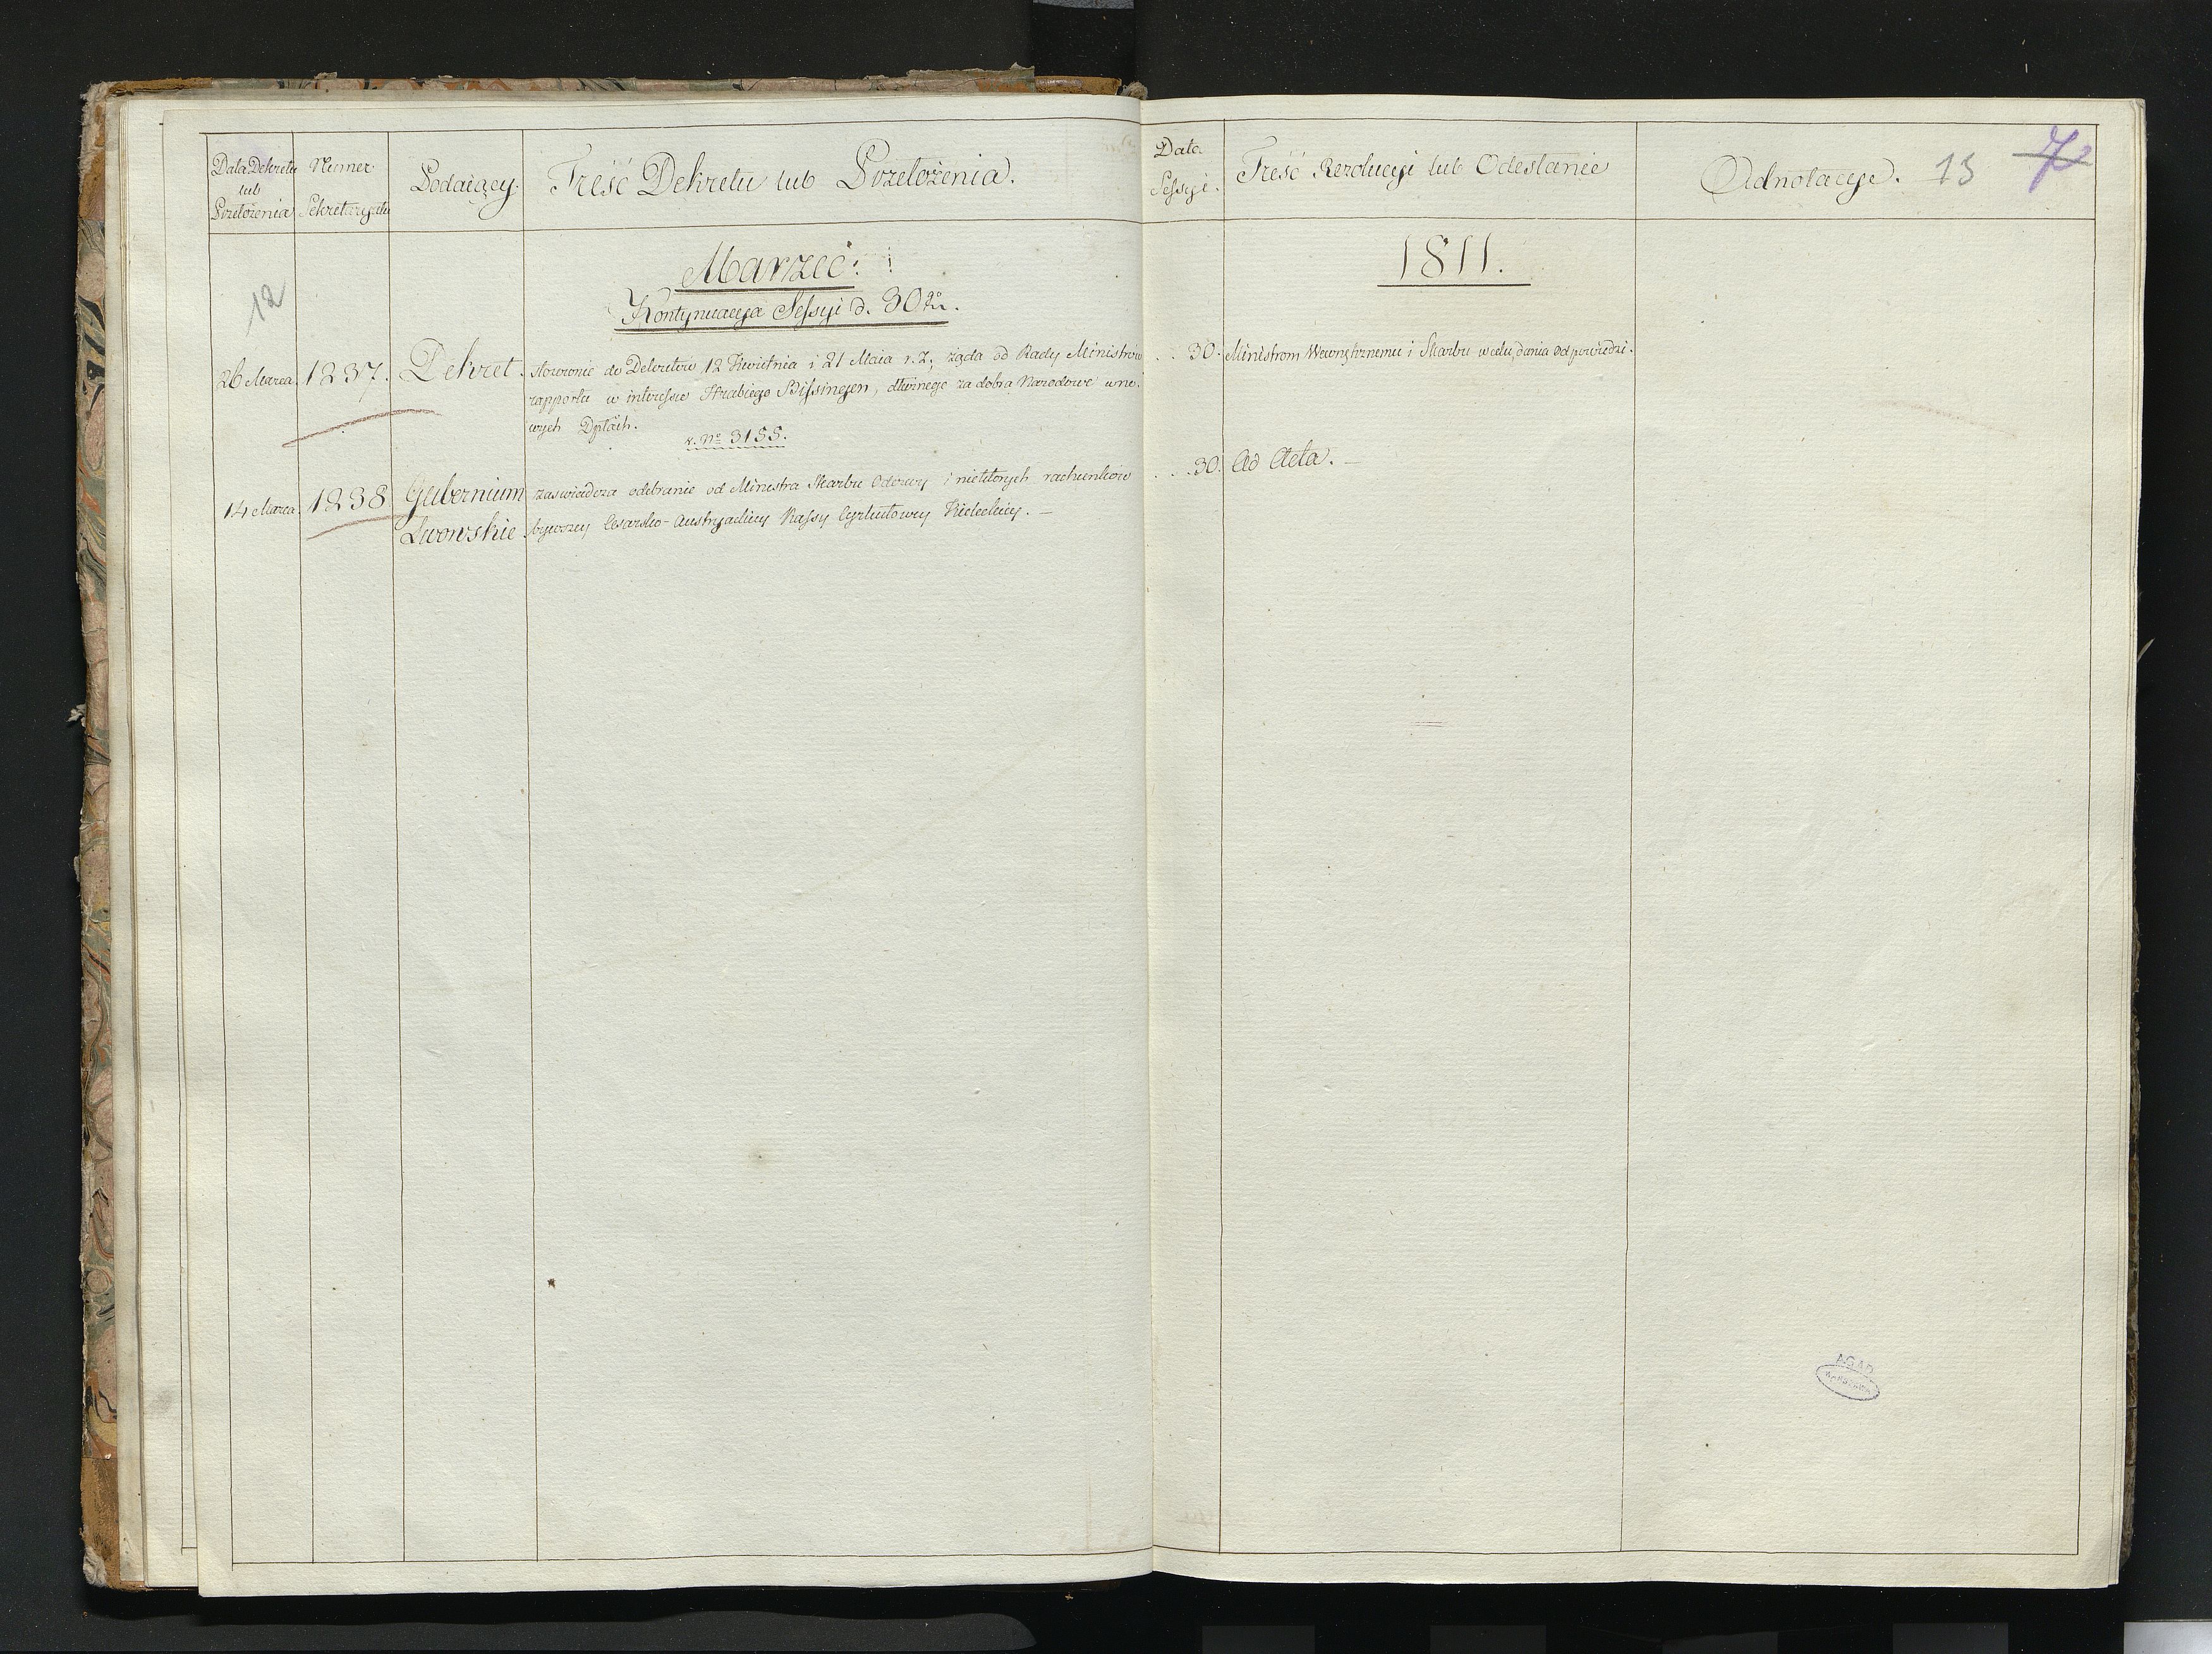 Data Dekretu
lub
Przełożenia
Numer
Sekretaryatu
Podaiący.
Treść Dekretu lub Przełożenia.
Data
Sessyi.
Treść Rezolucyi lub Odesłanie
Adnotacye. 13 7
12
Marzec:
Kontynuacya Sessyi d. 30go
1811.
26 Marca 1237. Dekret.
stosownie do Dekretów 12 Kwietnia i 21 Maia r. z; żąda od Rady Ministrów
rapportu w interessie Hrabiego Bissingen, dłużnego za dobra Narodowe w no-
wych Dptach.
v. No 3155.
30. Ministrom Wewnętrznemu i Skarbu w celu dania odpowiedzi.
14 Marca 1238. Gubernium
Lwowskie.
zaświadcza odebranie od Ministra Skarbu Odezwy i niektórych rachunków
bywszey Cesarsko-Austryackiey Kassy Cyrkułowey Kieleckiey. —
30. Ad Acta. —
AGAD
WARSZAWA